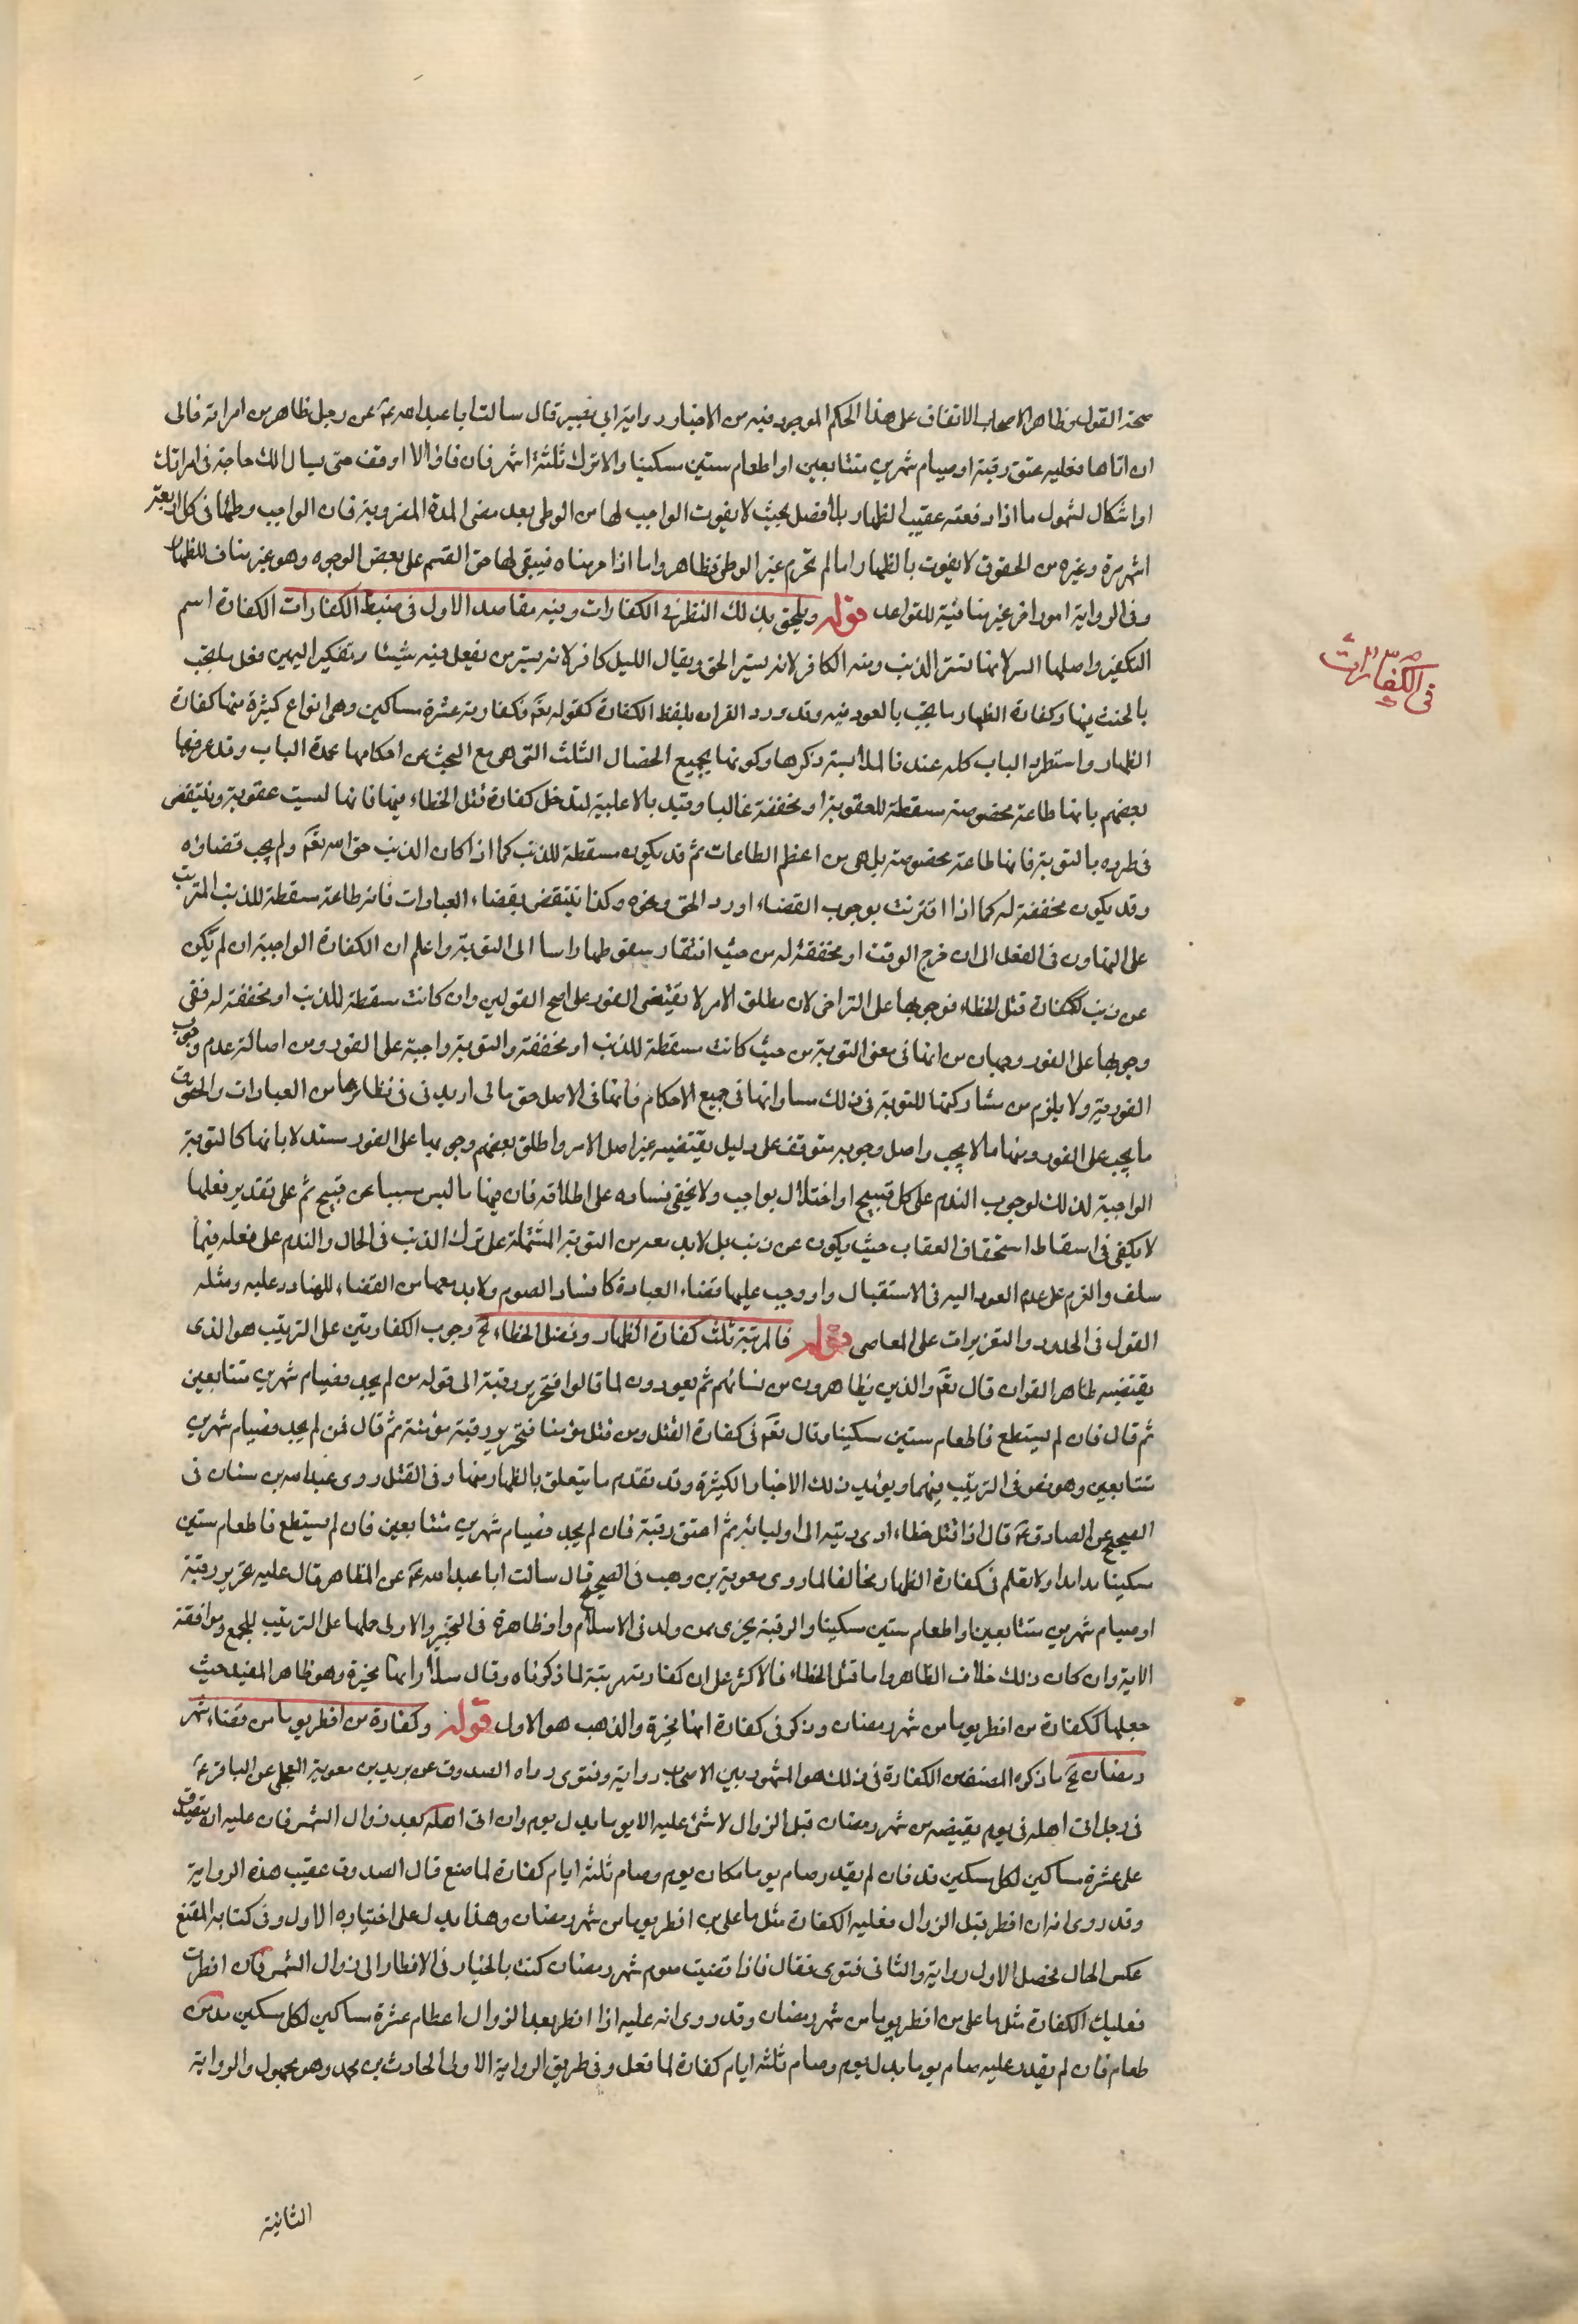 صحة القول وظاهر الاصحاب الاتفاق على هذا الحكم الموجود فيه من الاخبار رواية ابي بصير قال سالت ابا عبد الله عن رجل ظاهر من امراته قال
ان اتاها فعليه عتق رقبة او صيام شهرين متتابعين او اطعام ستين مسكينا والا ترك ثلثة اشهر فان فاء والا اوقف حتى يسال الك حاجة في امراتك
او اشكال لشمول ما اذا رفعته عقيب الظهار بلا فصل بحيث لا يفوت الواجب لها من الوطى بعد مضى المدة المضروبة فان الواجب وطئها في كل اربعة
اشهر مرة وغيره من الحقوق لا يفوت بالظهار اما لم تحرم غير الوطى فظاهر واما اذا حرمناه فيبقى لها حق القسم على بعض الوجوه وهو غير مناف للظهار
وفي الرواية امور اخر غير منافية للقواعد قوله ويلحق بذلك النظر في الكفارات وفيه مقاصد الاول في ضبط الكفارات الكفارة اسم
التكفير واصلها الستر لانها تستر الذنب ومنه الكافر لانه يستر الحق ويقال الليل كافر لانه يستر من يفعل فيه شيئا وتكفير اليمين فعل ما يجب
بالحنث فيها وكفارة الظهار ما يجب بالعود فيه وقد ورد القران بلفظ الكفارة كقوله تع فكفارته عشرة مساكين وهي انواع كثيرة منها كفارة
الظهار واستطرد الباب كله عنده فالملابسة ذكرها وكونها بجميع الخصال الثلث التي هي مع البحث عن احكامها عمدة الباب وقد عرفها
بعضهم بانها طاعة مخصوصة مسقطة للعقوبة او مخففة غالبا وقيد بالاغلبية لتدخل كفارة قتل الخطاء فيها فانها ليست عقوبة وينتقض
في طرده بالتوبة فانها طاعة مخصوصة بل هي من اعظم الطاعات ثم قد يكون مسقطة للذنب كما اذا كان الذنب حق الله تع ولم يجب قضاؤه
وقد يكون مخففة له كما اذا اقترنت بوجوب القضاء او رد الحق ونحوه وكذا تنتقض بقضاء العبادات فانه طاعة مسقطة للذنب المترتب
على التهاون في الفعل الى ان خرج الوقت او مخففة له من حيث افتقار سقوطها راسا الى التوبة واعلم ان الكفارة الواجبة ان لم تكن
عن ذنب ككفارة قتل الخطاء فوجوبها على التراخى لان مطلق الامر لا يقتضى الفور على اصح القولين وان كانت مسقطة للذنب او مخففة له ففي
وجوبها على الفور وجهان من انها في معنى التوبة من حيث كانت مسقطة للذنب او مخففة والتوبة واجبة على الفور ومن اصالة عدم وجوب
الفورية ولا يلزم من مشاركتها للتوبة في ذلك مساواتها في جميع الاحكام فانها في الاصل حق مالى او بدنى في نظائرها من العبادات والحقوق
ما يجب على الفور ومنها ما لا يجب واصل وجوبه متوقف على دليل يقتضيه غير اصل الامر واطلق بعضهم وجوبها على الفور مستدلا بانها كالتوبة
الواجبة لذلك لوجوب الندم على كل قبيح او اختلال بواجب ولا يخفى فساده على اطلاقه فان فيها ما ليس مسببا عن قبيح ثم على تقدير فعلها
لا يكفي في اسقاط استحقاق العقاب حيث يكون عن ذنب بل لابد معه من التوبة المشتملة على ترك الذنب في الحال والندم على فعله فيما
سلف والعزم على عدم العود اليه في الاستقبال ولو وجب عليها قضاء العبادة كافساد الصوم ولابد معها من القضاء للقادر عليه ومثله
القول في الحدود والتعزيرات على المعاصى قوله فالمرتبة ثلث كفارة الظهار وقتل الخطاء الخ وجوب الكفارتين على الترتيب هو الذى
يقتضيه ظاهر القران قال تع والذين يظاهرون من نسائهم ثم يعودون لما قالوا فتحرير رقبة الى قوله من لم يجد فصيام شهرين متتابعين
ثم قال فان لم يستطع فاطعام ستين مسكينا وقال تع في كفارة القتل ومن قتل مؤمنا فتحرير رقبة مؤمنة ثم قال فمن لم يجد فصيام شهرين
متتابعين وهو نص في الترتيب فيهما ويؤيد ذلك الاخبار الكثيرة وقد تقدم ما يتعلق بالظهار منها وفي القتل روى عبد الله بن سنان في
الصحيح عن الصادق ع قال اذا قتل خطاء ادى ديته الى اوليائه ثم اعتق رقبة فان لم يجد فصيام شهرين متتابعين فان لم يستطع فاطعام ستين
مسكينا مدا مدا ولا نعلم في كفارة الظهار مخالفا لما روى معوية بن وهب في الصحيح قال سالت ابا عبد الله ع عن المظاهر قال عليه تحرير رقبة
او صيام شهرين متتابعين او اطعام ستين مسكينا والرقبة يجزى ممن ولد في الاسلام واو ظاهرة في التخيير والاولى حملها على الترتيب للجمع وموافقة
الاية وان كان ذلك خلاف الظاهر واما قتل الخطاء فالاكثر على ان كفارته مرتبة لما ذكرناه وقال سلار انها مخيرة وهو ظاهر المفيد حيث
جعلها ككفارة من افطر يوما من شهر رمضان وذكر في كفارة انها مخيرة والمذهب هو الاول قوله وكفارة من افطر يوما من قضاء شهر
رمضان الخ ما ذكره المصنف من الكفارة في ذلك هو المشهور بين الاصحاب رواية وفتوى رواه الصدوق عن بريد بن معوية العجلى عن الباقر ع
في رجل اتى اهله في يوم يقضيه من شهر رمضان قبل الزوال لا شئ عليه الا يوما بدل يوم وان اتى اهله بعد زوال الشمس فان عليه ان يتصدق
على عشرة مساكين لكل مسكين مد فان لم يقدر صام يوما مكان يوم وصام ثلثة ايام كفارة لما صنع قال الصدوق عقيب هذه الرواية
وقد روى انه ان افطر قبل الزوال فعليه الكفارة مثل ما على من افطر يوما من شهر رمضان وهذا يدل على اختياره الاول وفي كتابه المقنع
عكس الحال فجعل الاول رواية والثاني فتوى فقال فاذا قضيت صوم شهر رمضان كنت بالخيار في الافطار الى زوال الشمس فان افطرت
فعليك الكفارة مثل ما على من افطر يوما من شهر رمضان وقد روى انه عليه اذا افطر بعد الزوال اطعام عشرة مساكين لكل مسكين مد من
طعام فان لم يقدر عليه صام يوما بدل يوم وصام ثلثة ايام كفارة لما فعل وفي طريق الرواية الاولى الحارث بن محمد وهو مجهول والرواية
الثانية
في الكفارات